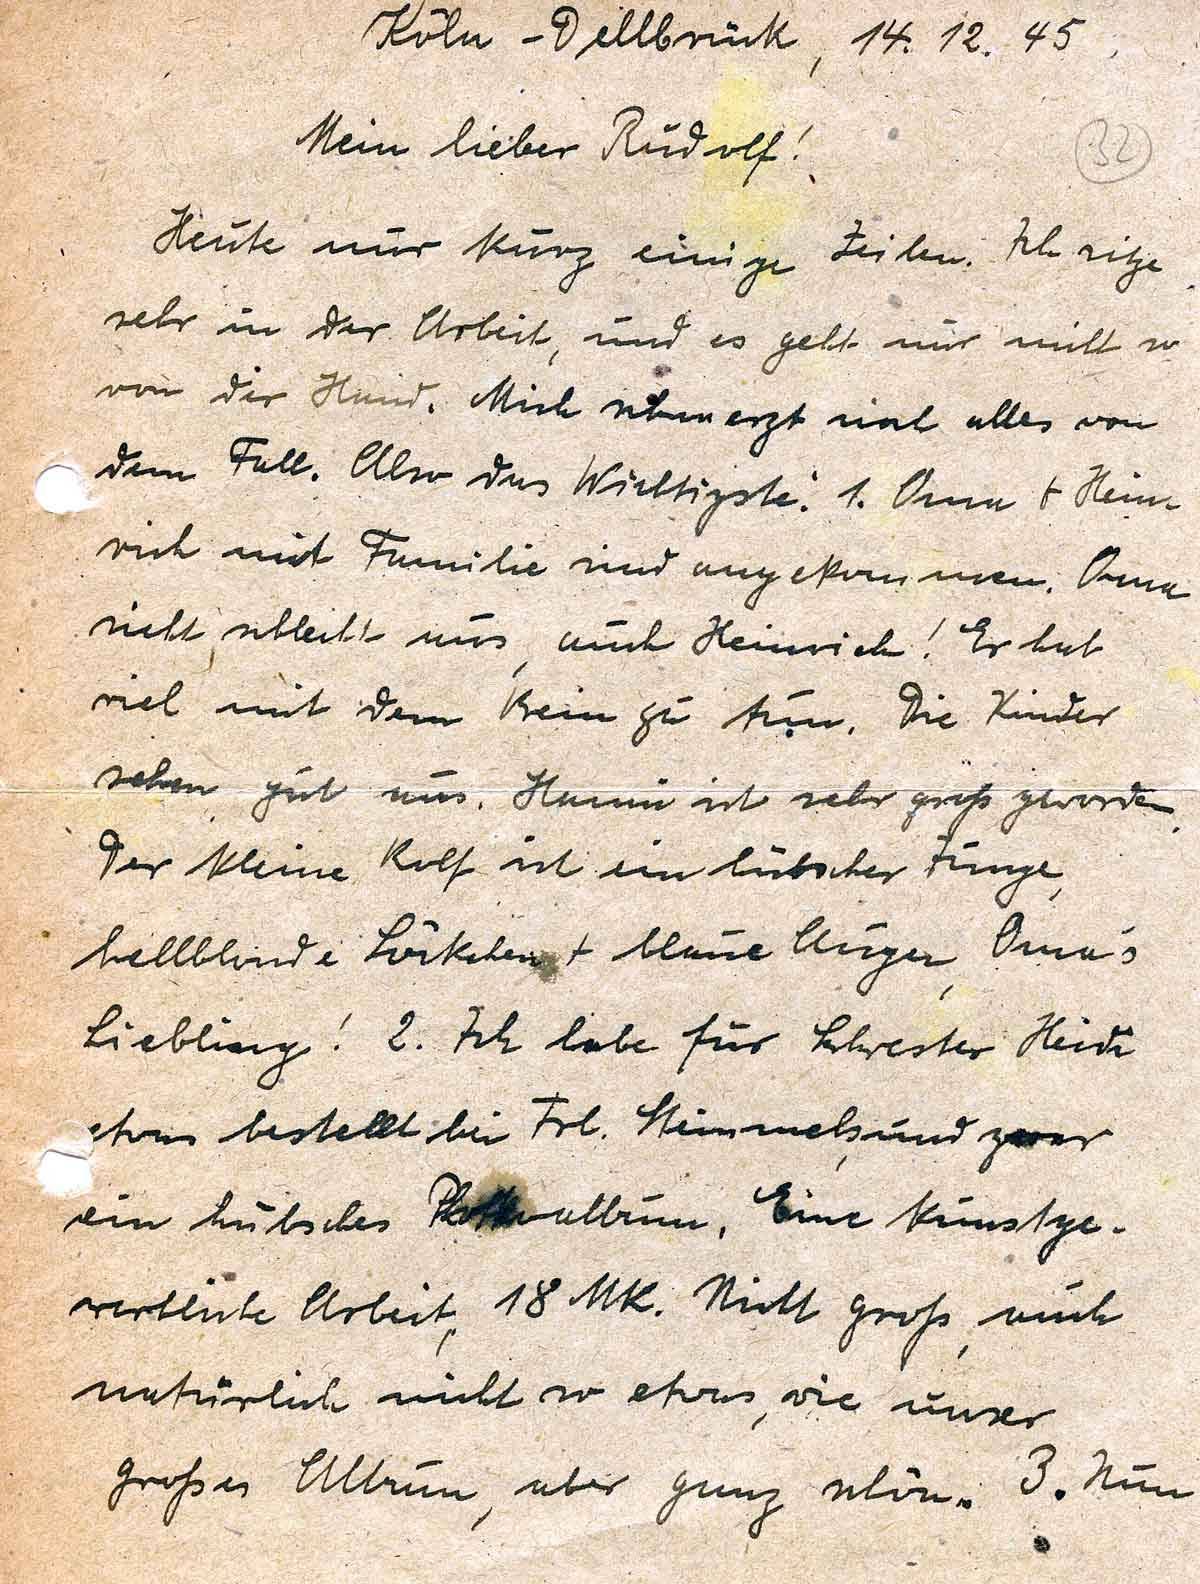 Köln-Dellbrück, 14.12.45
Mein lieber Rudolf!
32
Heute nur kurz einige Zeilen. Ich sitze
sehr in der Arbeit, und es geht nur nicht so
von der Hand. Mich schmerzt noch alles von
dem Fall. Also das Wichtigste: 1. Oma + Hein-
rich mit Familie sind angekommen. Oma
sieht schlecht aus, auch Heinrich! Er hat
viel mit dem Bein zu tun. Die Kinder
sehen gut aus. Hanni ist sehr groß geworden.
Der kleine Rolf ist ein hübscher Junge,
hellblonde Löckchen + blaue Augen, Oma's
Liebling! 2. Ich habe für Schwester Heidi
etwas bestellt bei Frl. und zwar
ein hübsches Photoalbum. Eine kunstge-
werbliche Arbeit, 18 MK. Nicht groß, auch
natürlich nicht so etwas, wie unser
großes Album, aber ganz schön. 3. Nun